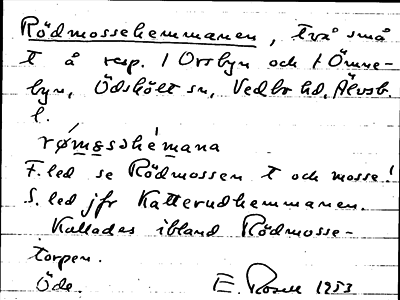 Rödmossehemmanen, två små
t å resp. / Orrbyn och / Ömne-
byn, Ödskölt sn, Vedbo hd, Älvsb.
l.
rǿmesəhémana
F.led se Rödmossen t och mosse!
S. led jfr Katterudhemmanen.
Kallades ibland Rödmosse-
torpen.
Öde. E. Rosell 1953